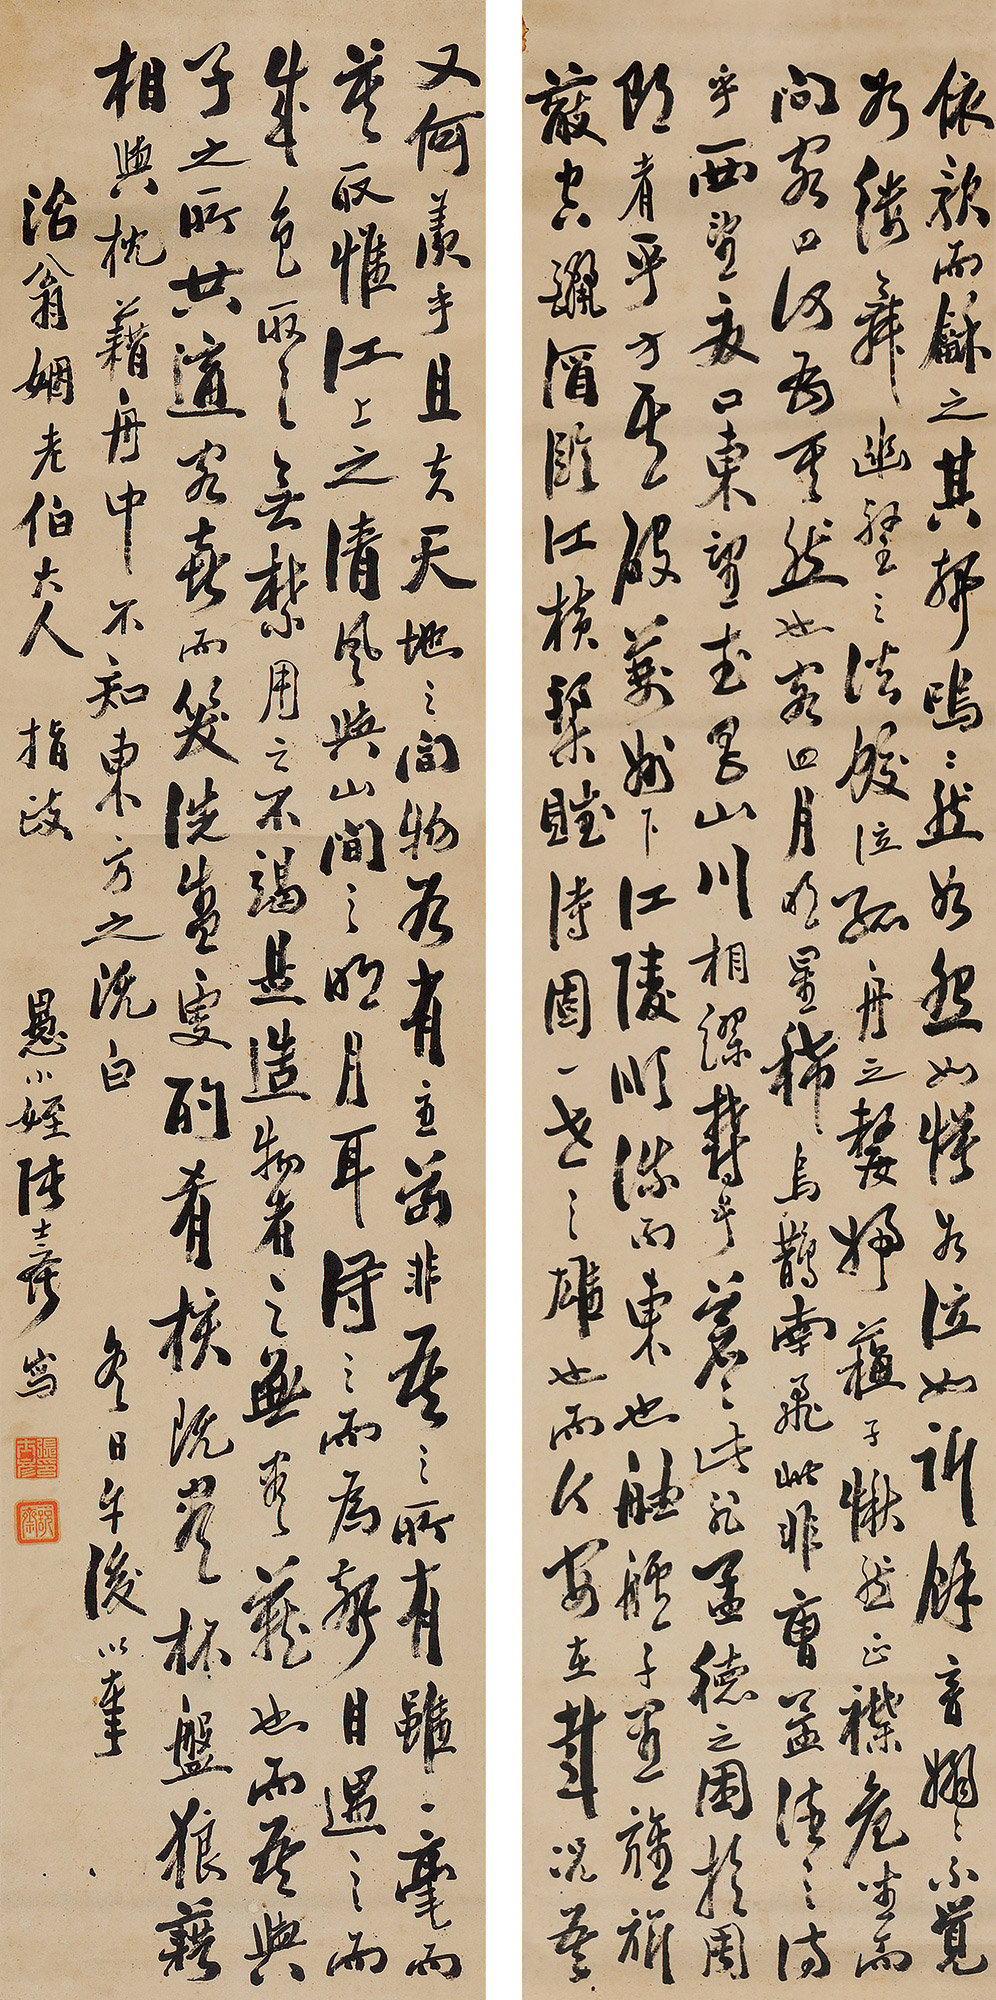 依歌而龢之其聲嗚〻然如怨如慕如泣如訴餘音嫋〻不覺
如縷舞幽壑之潛蛟泣孤舟之嫠婦蘇子愀然正襟危坐而
問客曰何為其然也客曰月明星稀烏鵲南飛此非曹孟德之詩
乎西望夏口東望武昌山川相繆鬱乎蒼〻此非孟德之困於周
郎者乎方其破荊州下江陵順流而東也舳艫千里旌旂
蔽空釃酒臨江橫槊賦詩固一世之雄也而今安在哉況吾
又何羨乎且夫天地之間物各有主苟非吾之所有雖一毫而
莫取惟江上之清風與山間之明月耳得之而為聲目遇之而
成色取之無禁用之不竭是造物者之無盡藏也而吾與
子之所共適客喜而笑洗盞更酌肴核既盡杯盤狼藉
相與枕藉舟中不知東方之既白
冬日午後以奉
治翁姻老伯大人 指政
愚小姪張士彥寫